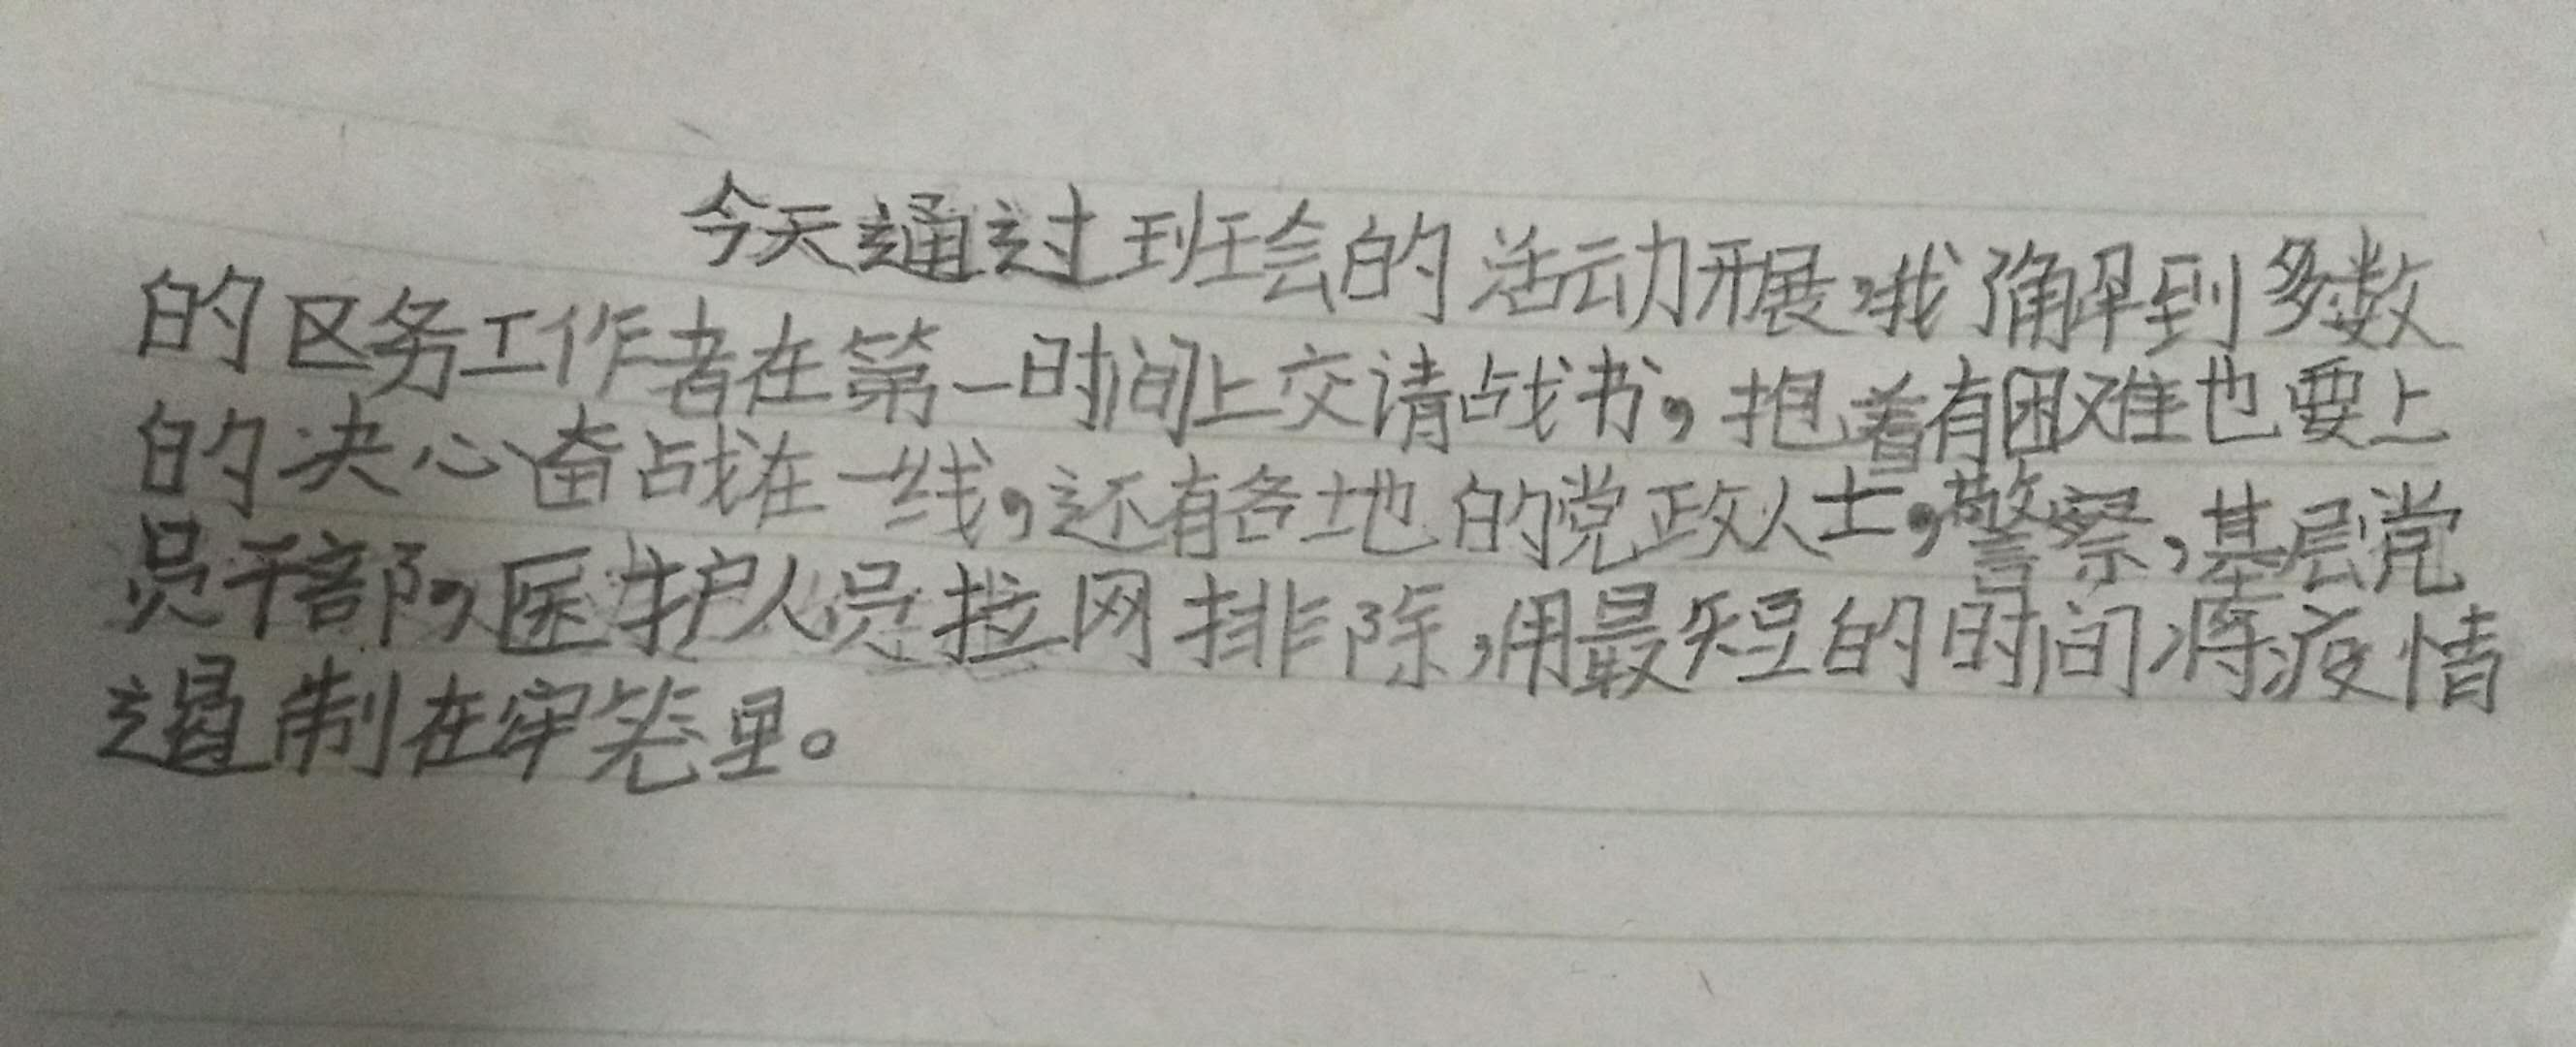 今天通过班会的活动开展,我了解到多数
的区务工作者在第一时间上交请战书,抱着有困难也要上
的决心奋战在一线,还有各地的党政人士,警察,基层党
员干部,医护人员拉网排除,用最短的时间将疫情
遏制在牢笼里。